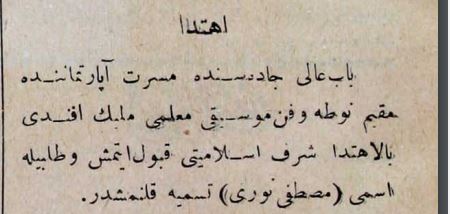 اهتدا
باب عالی جاده‌سنده مسرت آپارتماننده
مقیم نوطه وفن موسیقی معلمی ملبك افندی
بالاهتدا شرف اسلامیتی قبول ایتمش وطلبیله
اسمی (مصطفی نوری) تسمیه قلنمشدر.